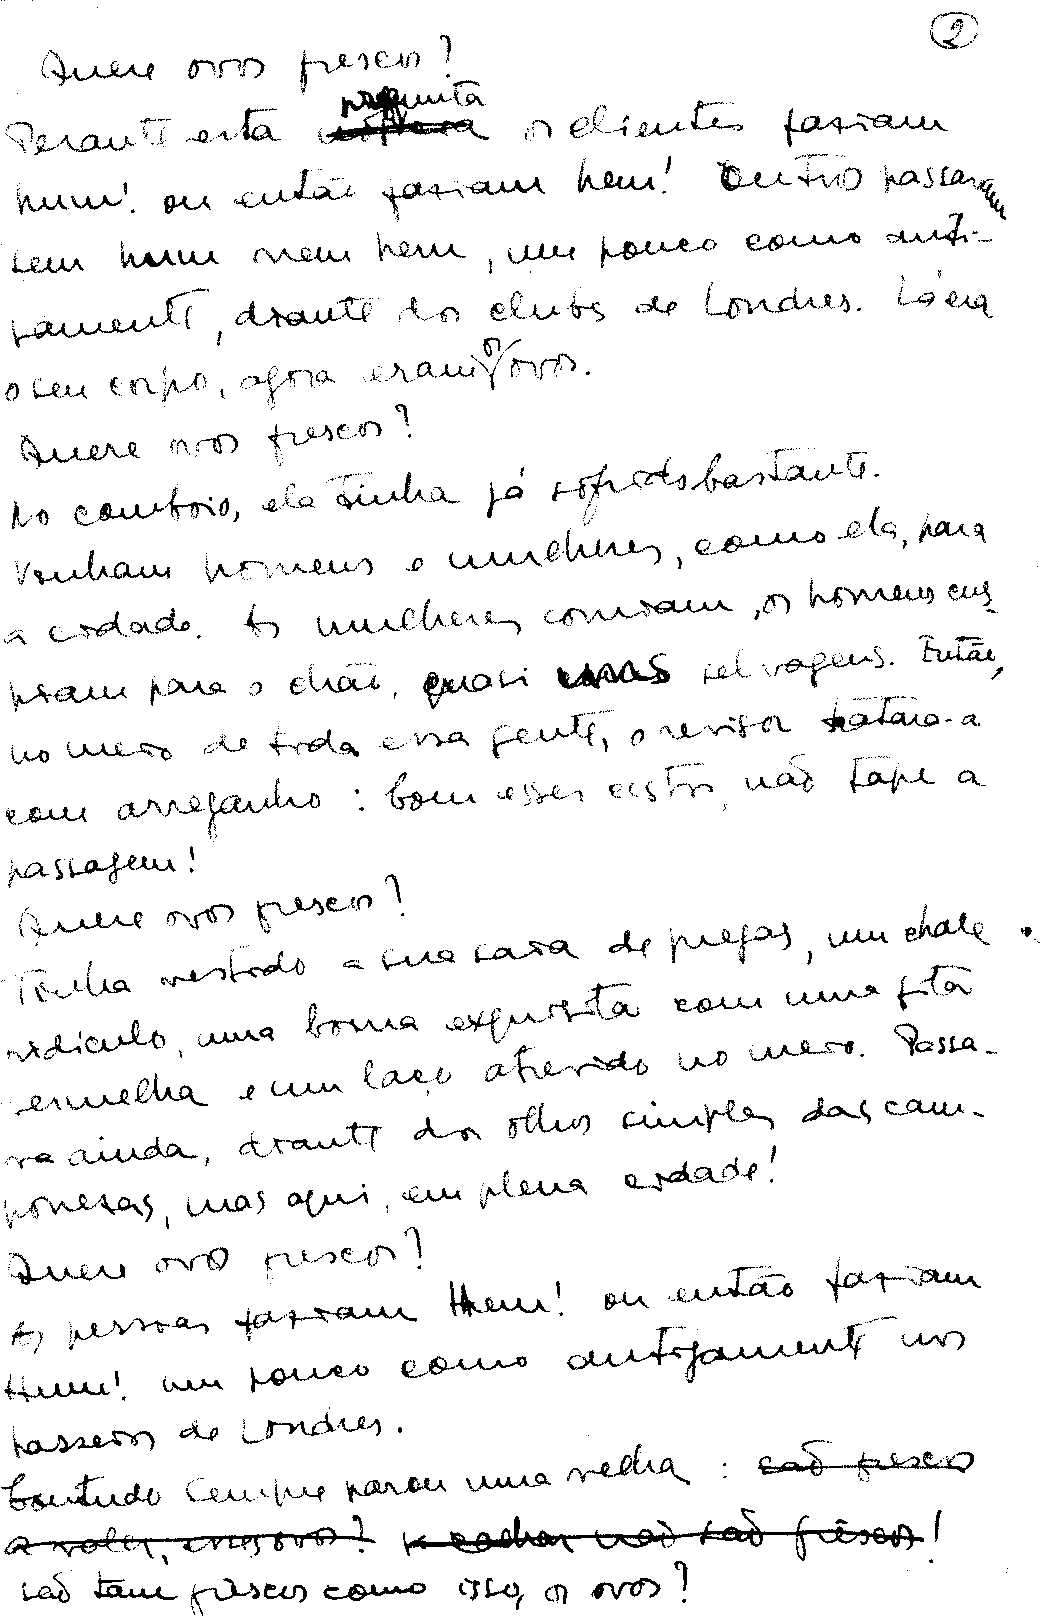 2
Quere ovos frescos?
pregunta
Perante esta os clientes faziam
hum! ou então faziam hem! Outros passavam
sem hum nem hem, um pouco como anti-
gamente, diante dos clubs de Londres. Lá era
o seu corpo, agora eram os ovos.
Quere ovos frescos?
No comboio, ela tinha já sofrido bastante.
Vinham homens e mulheres, como ela, para
a cidade. As mulheres comiam, os homens cus-
piam para o chão, quasi selvagens. Então,
no meio de toda essa gente, o revisor tratara-a
com arreganho: bom esses cestos, não tape a
passagem!
Quere ovos frescos?
Tinha vestido a sua saia de pregas, um chale
ridiculo, uma boina exquisita com uma fita
vermelha e um laço atrevido no meio. Passa-
va ainda, diante dos olhos simples das cam-
ponesas, mas aqui, em plena cidade!
Quere ovos frescos?
As pessoas faziam Hem! ou então faziam
Hum! um pouco como antigamente nos
passeios de Londres.
Contudo sempre parou uma velha: são frescos
a valer, esses ovos? não são frêscos!
são tam frêscos como isso, os ovos?